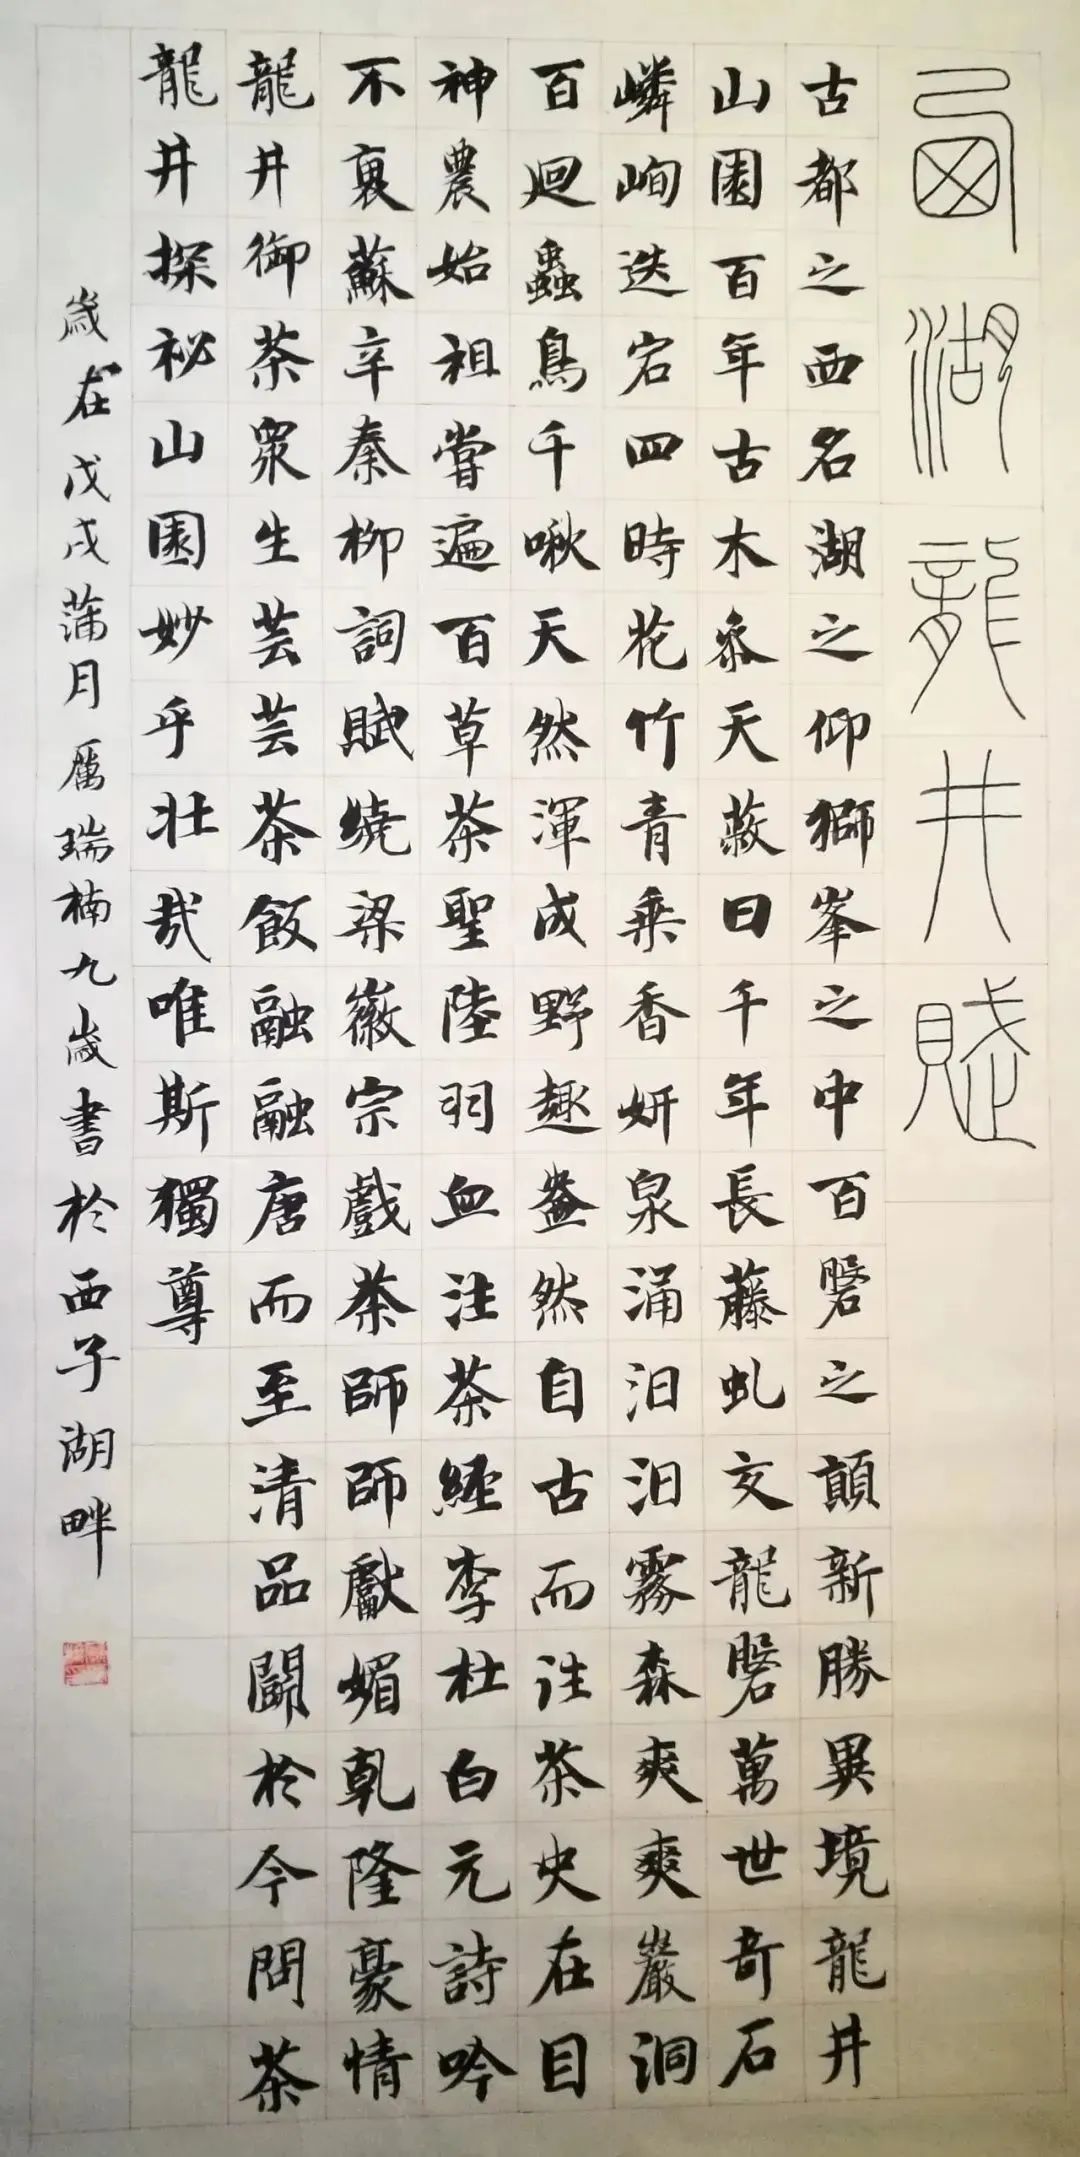 西湖龍井賦
古都之西名湖之仰獅峯之中百磐之顛新勝異境龍井
山園百年古木叅天蔽日千年長藤虬交龍磐萬世奇石
嶙峋迭宕四時花竹青乘香妍泉涌汨汨霧森爽爽巖洞
百迴蟲鳥千啾天然渾成野趣盎然自古而往茶史在目
神農始祖嘗遍百草茶聖陸羽血注茶經李杜白元詩吟
不裏蘇辛秦柳詞賦繞梁徽宗戲茶師師獻媚乾隆豪情
龍井御茶眾生芸芸茶飯融融唐而至清品鬭於今問茶
龍井探祕山園妙乎壯哉唯斯獨尊
歲在戊戌蒲月厲瑞楠九歲書於西子湖畔